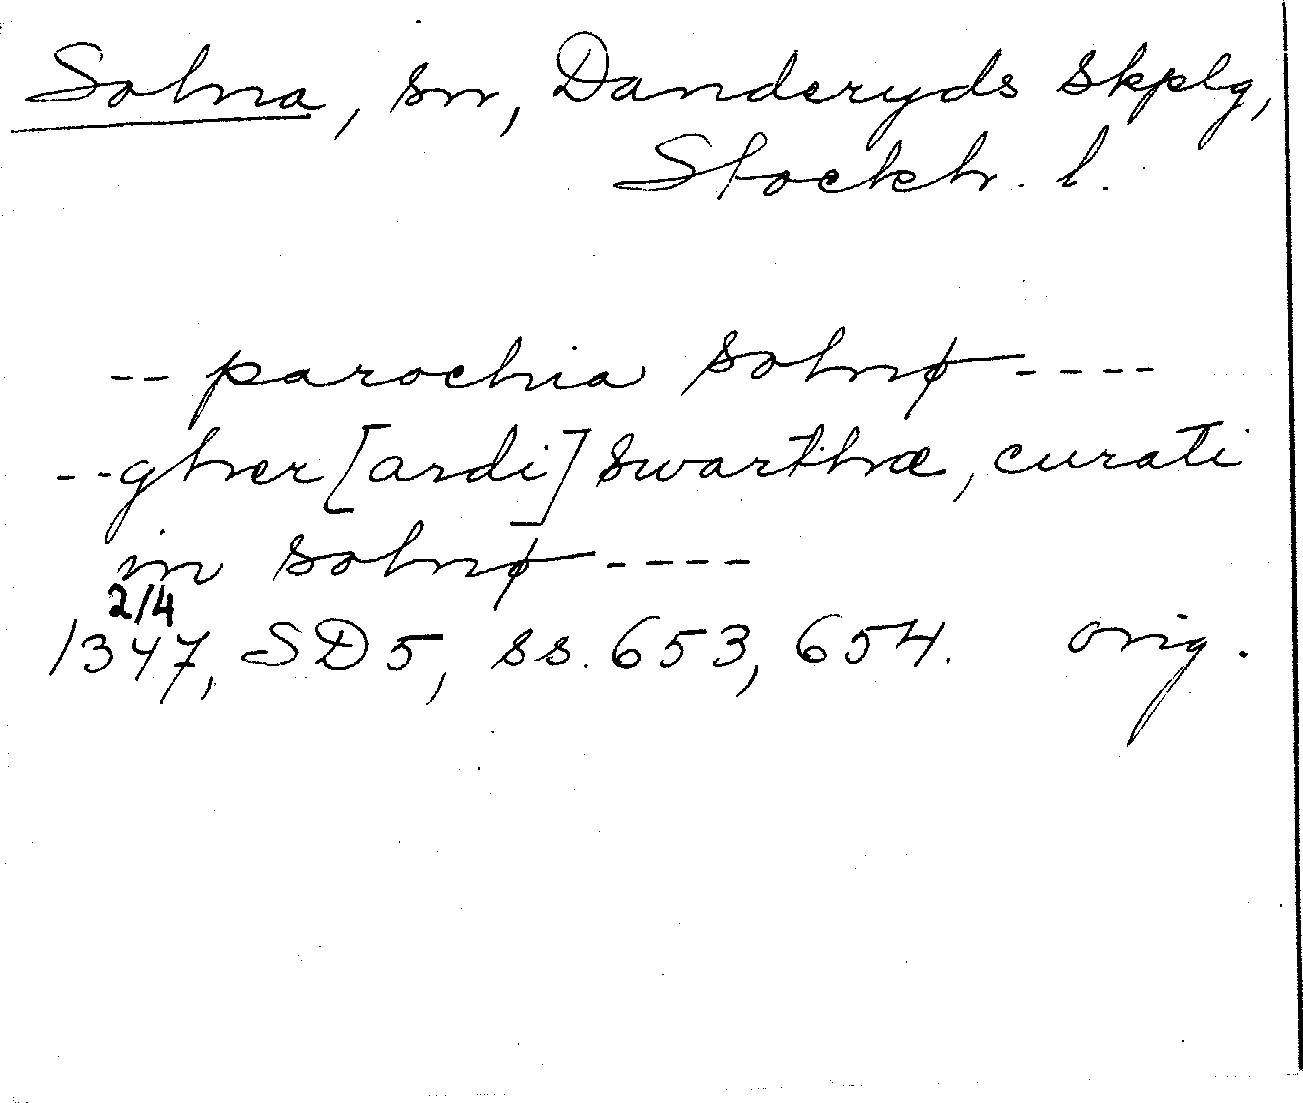 Solna, sn, Danderyds skplg,
Stockh. l.
-- parochia solnø ----
--gher[ardi] swarthæ, curati
in solnø ----
2/4
1347, SD5, ss. 653, 654. orig.